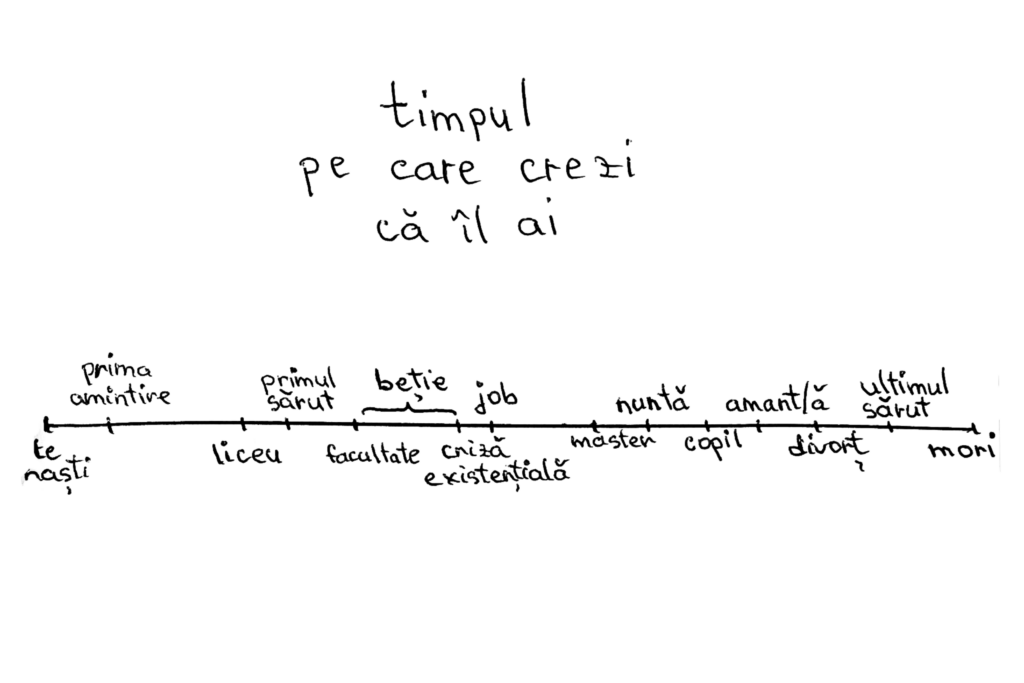 timpul
pe care crezi
că îl ai
prima
amintire
primul
sărut
beție
job
nuntă
amant/ă
ultimul
sărut
te
naști
liceu
facultate
criză
existențială
master
copil
divorț
mori